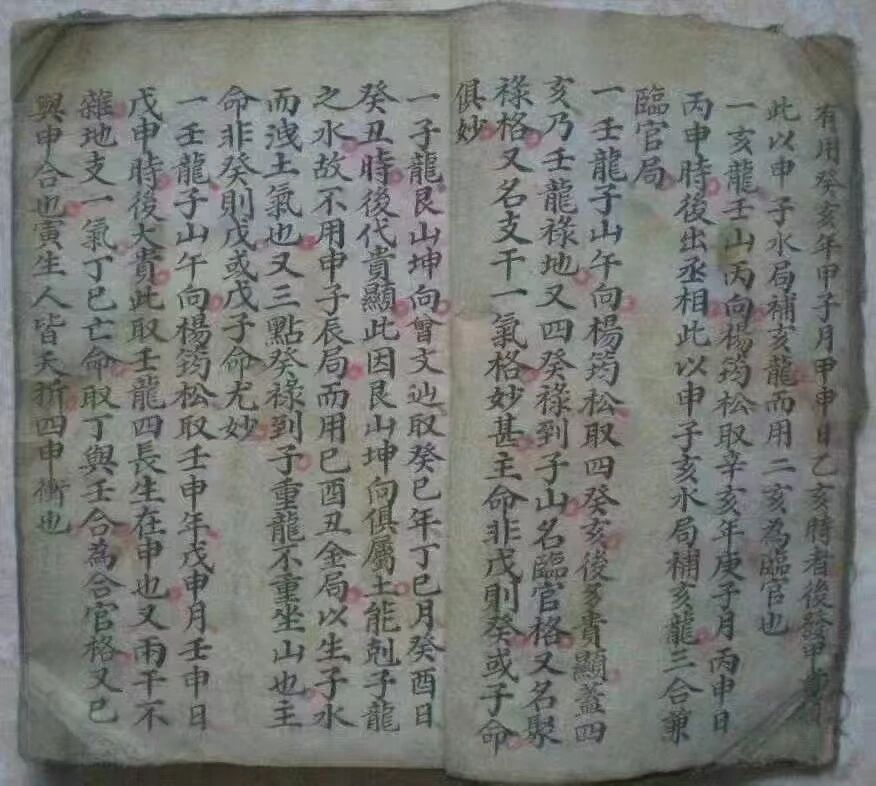 有用癸亥年甲子月甲申日乙亥時者後發甲
此以申子水局補亥龍而用二亥為臨官也
一亥龍壬山丙向楊筠松取辛亥年庚子月丙申日
丙申時後出丞相此以申子亥水局補亥龍三合兼
臨官局
一壬龍子山午向楊筠松取四癸亥後多貴顯蓋四
亥乃壬龍祿地又四癸祿到子山名臨官格又名聚
祿格又名支干一氣格妙甚主命非戊則癸或子命
俱妙
一子龍艮山坤向曾文辿取癸巳年丁巳月癸酉日
癸丑時後代貴顯此因艮山坤向俱屬土能剋子龍
之水故不用申子辰局而用巳酉丑金局以生子水
而洩土氣也又三點癸祿到子重龍不重坐山也主
命非癸則戊或戊子命尤妙
一壬龍子山午向楊筠松取壬申年戊申月壬申日
戊申時後大貴此取壬龍四長生在申也又兩干不
雜地支一氣丁巳亡命取丁與壬合為合官格又巳
與申合也寅生人皆夭折四申衝也